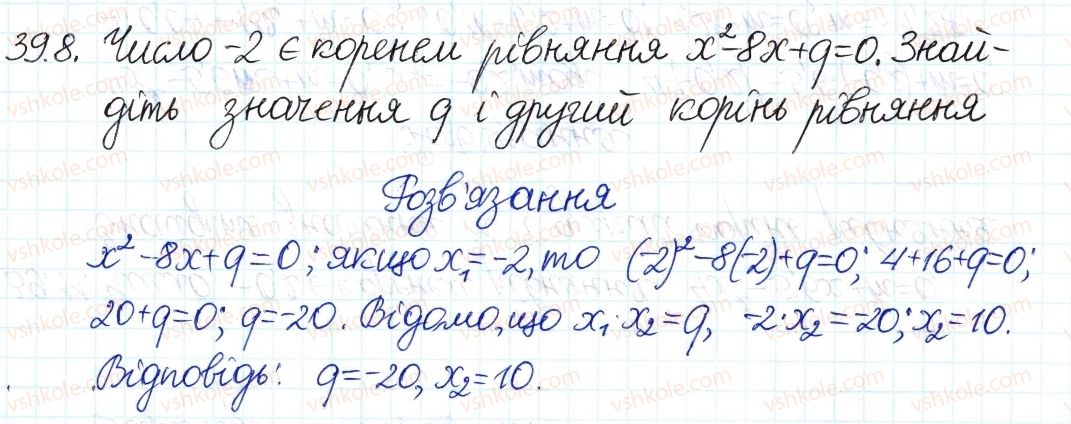 39.8. Число -2 є коренем рівняння x²-8x+q=0. Знай-
діть значення q і другий корінь рівняння
Розв'язання
x²-8x+q=0; якщо x₁=-2, то (-2)²-8(-2)+q=0; 4+16+q=0;
20+q=0; q=-20. Відомо, що x₁·x₂=q, -2·x₂=-20; x₂=10.
Відповідь: q=-20, x₂=10.